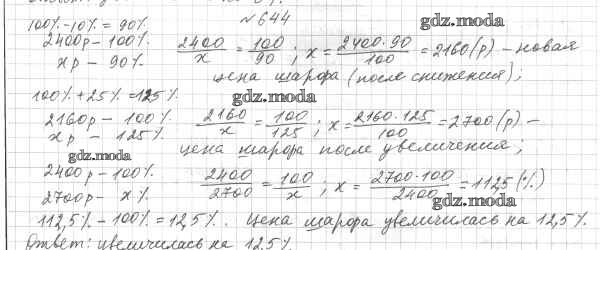 №644
100% - 10% = 90%
2400р - 100%
xр - 90%
2400/x = 100/90 ; x = 2400·90/100 = 2160 (р) - новая
цена шарфа (после снижения);
100% + 25% = 125%
2160р - 100%
xр - 125%
2160/x = 100/125 ; x = 2160·125/100 = 2700 (р) -
цена шарфа после увеличения;
2400р - 100%
2700р - x%
2400/2700 = 100/x ; x = 2700·100/2400 = 112,5 (%)
112,5% - 100% = 12,5%. Цена шарфа увеличилась на 12,5%.
Ответ: увеличилась на 12,5%.
gdz.moda
gdz.moda
gdz.moda
gdz.moda